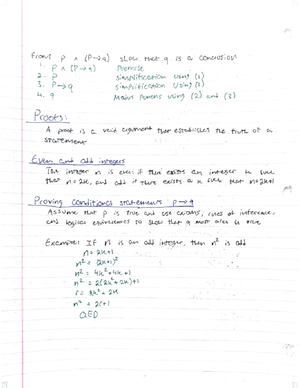 From P ∧ (P→q) show that q is a conclusion
1. P ∧ (P→q) Premise
2. P simplification using (1)
3. P→q simplification using (1)
4. q Modus Ponens using (2) and (3)
Proofs:
A proof is a valid argument that establishes the truth of a
statement
Even and odd integers
The integer n is even if there exists an integer k such
that n=2k, and odd if there exists a k such that n=2k+1
Proving conditional statements p→q
Assume that p is true and use axioms, rules of inference,
and logical equivalences to show that q must also be true
Example: If n is an odd integer, then n² is odd
n=2k+1
n² = (2k+1)²
n² = 4k²+4k+1
n² = 2(2k²+2k)+1
r = 2k²+2k
n² = 2r+1
QED